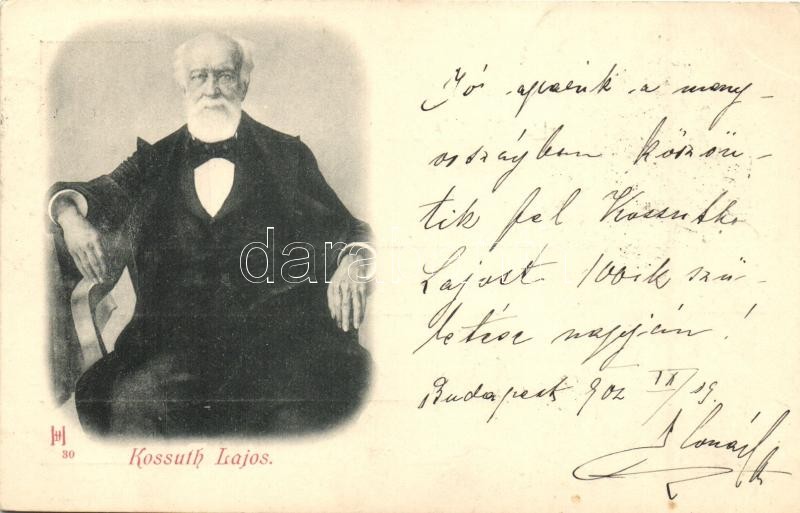 Jó apáink a meny-
országban köszön-
tik fel Kossuth
Lajost 100ik szü-
letése napján!
Budapest 902 IX/19.
darabanth
30
Kossuth Lajos.